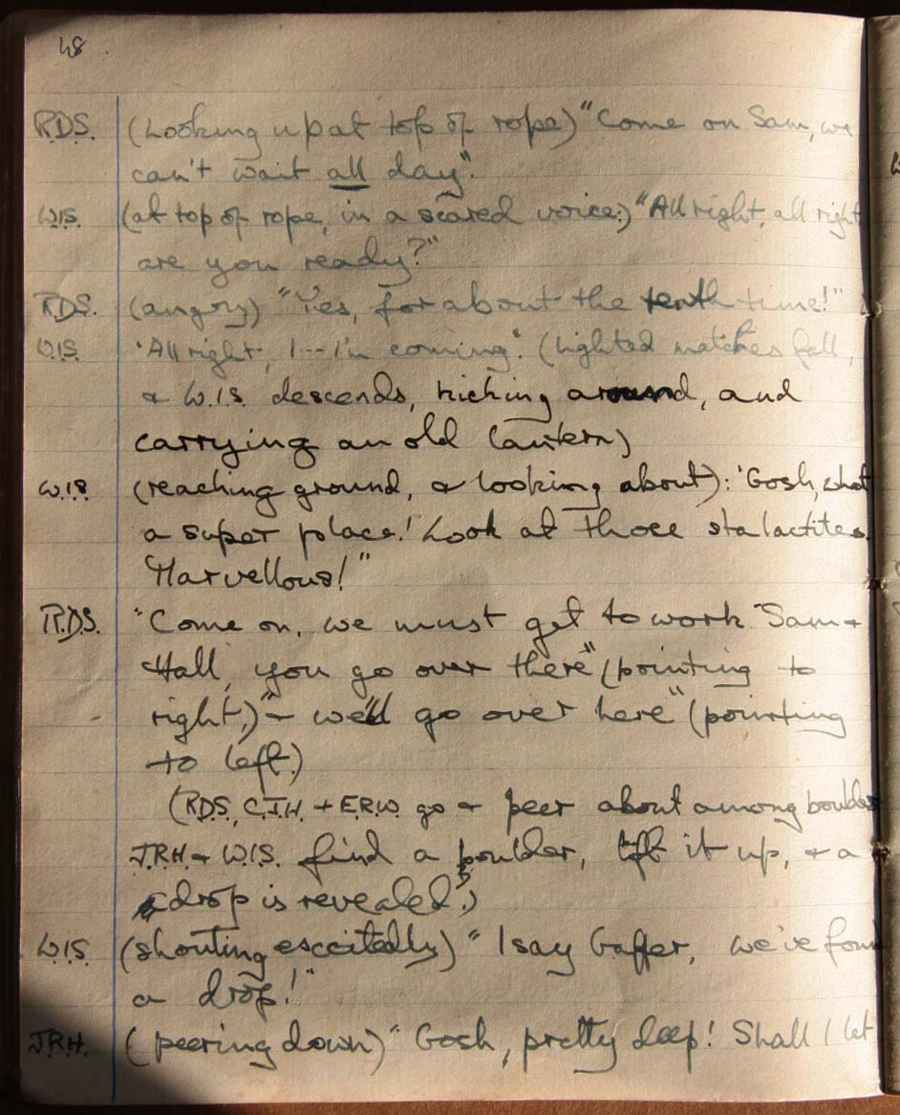 48.
R.D.S. (Looking up at top of rope) "Come on Sam, we
can't wait all day".
W.I.S. (at top of rope, in a scared voice:) "All right, all right
are you ready?"
R.D.S. (angry) "Yes, for about the tenth time!"
W.I.S. "All right, I---I'm coming". (Lighted matches fall,
& W.I.S. descends, kicking around, and
carrying an old lantern)
W.I.S. (reaching ground, & looking about): 'Gosh, what
a super place! Look at those stalactites.
Marvellous!"
R.D.S. "Come on, we must get to work. Sam &
Hall, you go over there" (pointing to
right.)" - we'll go over here" (pointing
to left.)
(RDS, C.J.H. + E.R.W. go & peer about among boulder
J.R.H & W.I.S. find a boulder, lift it up, & a
drop is revealed.)
W.I.S. (shouting excitedly) "I say Gaffer, we've foun
a drop!"
J.R.H. (peering down) "Gosh, pretty deep! Shall I let